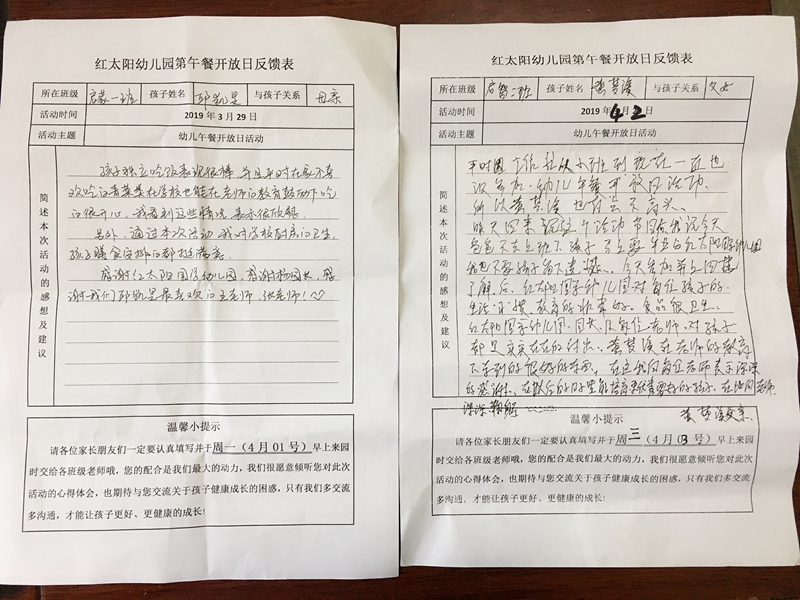 红太阳幼儿园第午餐开放日反馈表
所在班级 启蒙一班 孩子姓名 与孩子关系 母亲
活动时间 2019年3月29日
活动主题 幼儿午餐开放日活动
简述本次活动的感想及建议
孩子独立吃饭表现很棒 并且平时在家不喜
欢吃的青菜类在学校也能在老师的教育鼓励下吃
的很开心,我看到这些情况表示很欣慰。
另外,通过本次活动,我对学校厨房的卫生,
孩子膳食安排的都挺满意。
感谢红太阳国学幼儿园,感谢杨园长,感
谢我们最喜欢的王老师,张老师!
温馨小提示
请各位家长朋友们一定要认真填写并于周一(4月01号)早上来园
时交给各班级老师哦,您的配合是我们最大的动力,我们很愿意倾听您对此次
活动的心得体会,也期待与您交流关于孩子健康成长的困惑,只有我们多交流
多沟通,才能让孩子更好、更健康的成长!
红太阳幼儿园第午餐开放日反馈表
所在班级 二班 孩子姓名 黄梦溪 与孩子关系 父女
活动时间 2019年4月2日
活动主题 幼儿午餐开放日活动
简述本次活动的感想及建议
平时因工作 从小班到现在一直也
没参加幼儿午餐开放日活动,
所以黄梦溪也 会不高兴。
昨天回来说 这个活动 我说今天
爸爸不去上班了 孩子
也不要孩子 今天参加 
了解后,红太阳国学幼儿园对每位孩子的
生活 教育的非常好。食品很卫生。
红太阳国学幼儿园 园长 及每位老师 对孩子
都是实实在在的付出。黄梦溪在老师的教育
下学到的很好的东西。在这我向每位老师表示深深
的感谢。
深深鞠躬
黄梦溪父亲
温馨小提示
请各位家长朋友们一定要认真填写并于周三(4月03号)早上来园
时交给各班级老师哦,您的配合是我们最大的动力,我们很愿意倾听您对此次
活动的心得体会,也期待与您交流关于孩子健康成长的困惑,只有我们多交流
多沟通,才能让孩子更好、更健康的成长!